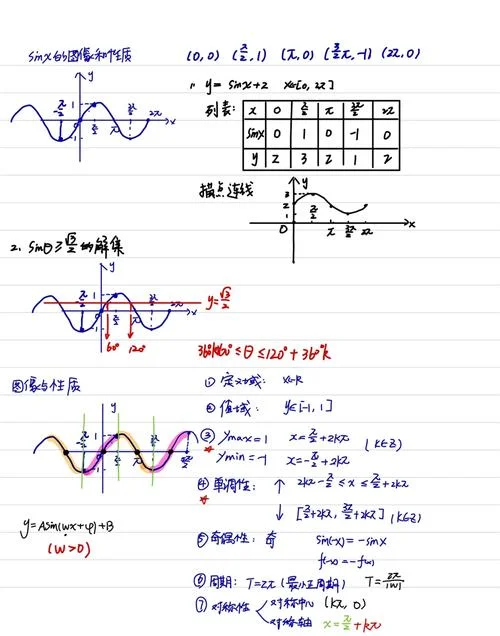 sinx的图像和性质
(0,0) (π/2,1) (π,0) (3/2π,-1) (2π,0)
1. y= sinx+2 x∈[0,2π]
列表:
x 0 π/2 π 3π/2 2π
sinx 0 1 0 -1 0
y 2 3 2 1 2
y
1
-π/2 π/2 π 3π/2 2π x
-1
描点连线
y
3
2
1
0 π/2 π 3π/2 2π x
2. sinθ≥√3/2的解集
y
1
-π/2 π/2 π 3π/2 2π x
-1
y=√3/2
60° 120°
360°k+60°≤θ≤120°+360°k
图像与性质
y
1
-π/2 π/2 π 3π/2 x
-1
① 定义域: x∈R
② 值域: y∈[-1,1]
③ ymax=1 x=π/2+2kπ (k∈Z)
ymin=-1 x=-π/2+2kπ
④ 单调性: ↑ 2kπ-π/2≤x≤π/2+2kπ
↓ [π/2+2kπ, 3π/2+2kπ] (k∈Z)
y=Asin(wx+φ)+B
(w>0)
⑤ 奇偶性: 奇 sin(-x)=-sinx
f(-x)=-f(x)
⑥ 周期: T=2π (最小正周期) T=2π/|w|
⑦ 对称性 对称中心 (kπ,0)
对称轴 x=π/2+kπ